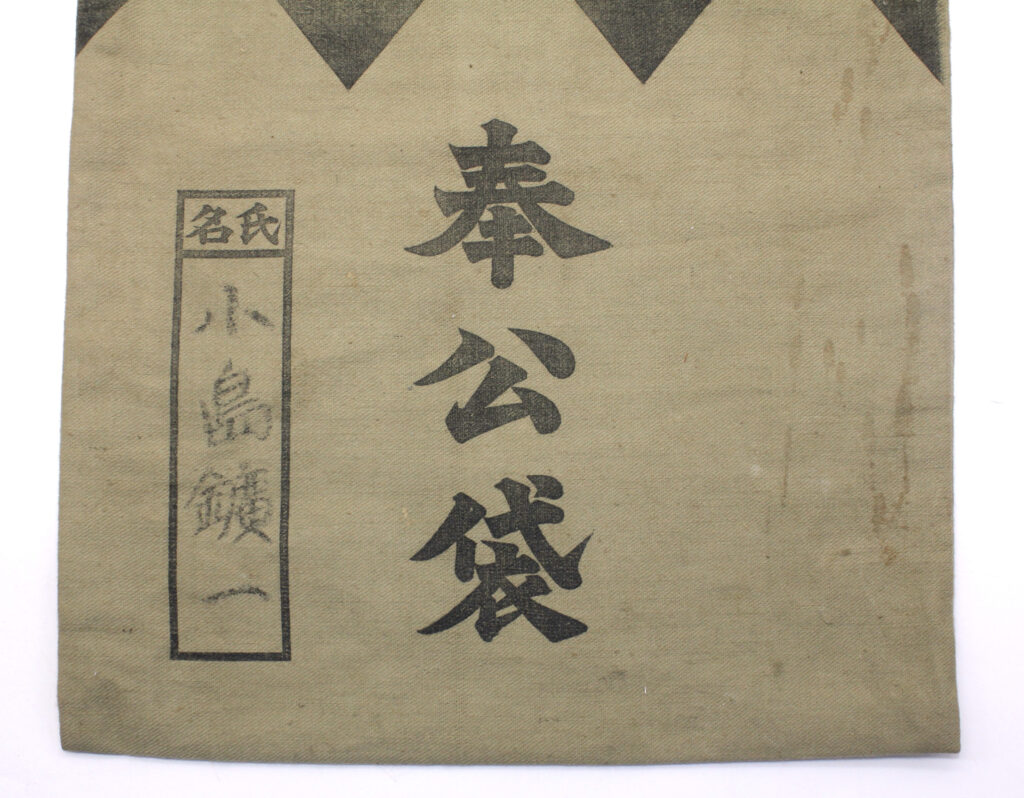 奉公袋
氏名
小島鑛一